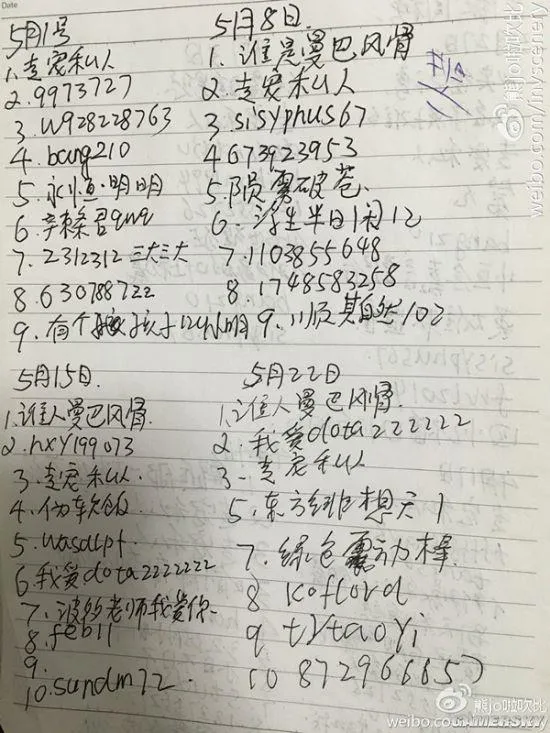 Date
5月1号
1.专宠私人
2.9973727
3.w928228763
4.bang210
5.永恒·明明
6.辛桑君qwq
7.2312312 三大三大
8.630788722
9.有个
孩子
5月8日
1.谁是曼巴风骨
2.专宠私人
3.sisyphus67
4 673923953
5.陨雾破苍
6.浮生半日闲12
7.1103855648
8.1748583258
9.顺其自然102
5月15日
1.谁人曼巴风骨.
2.hxy199073
3.专宠私人
4.伪软饭
5.wasdlpf.
6.我爱dota2222222
7.波多老师我爱你
8.feb11
9.
10.sundm72.
5月22日
1.谁人曼巴风骨.
2.我爱dota222222
3.专宠私人
5.东方绯想天1
7.绿色震动棒.
8 koflord
9 tytaoyi
10 872966857
熊jo啦吹比
weibo.com/invscenery
熊jo啦吹比
weibo.com/
GAMERSKY